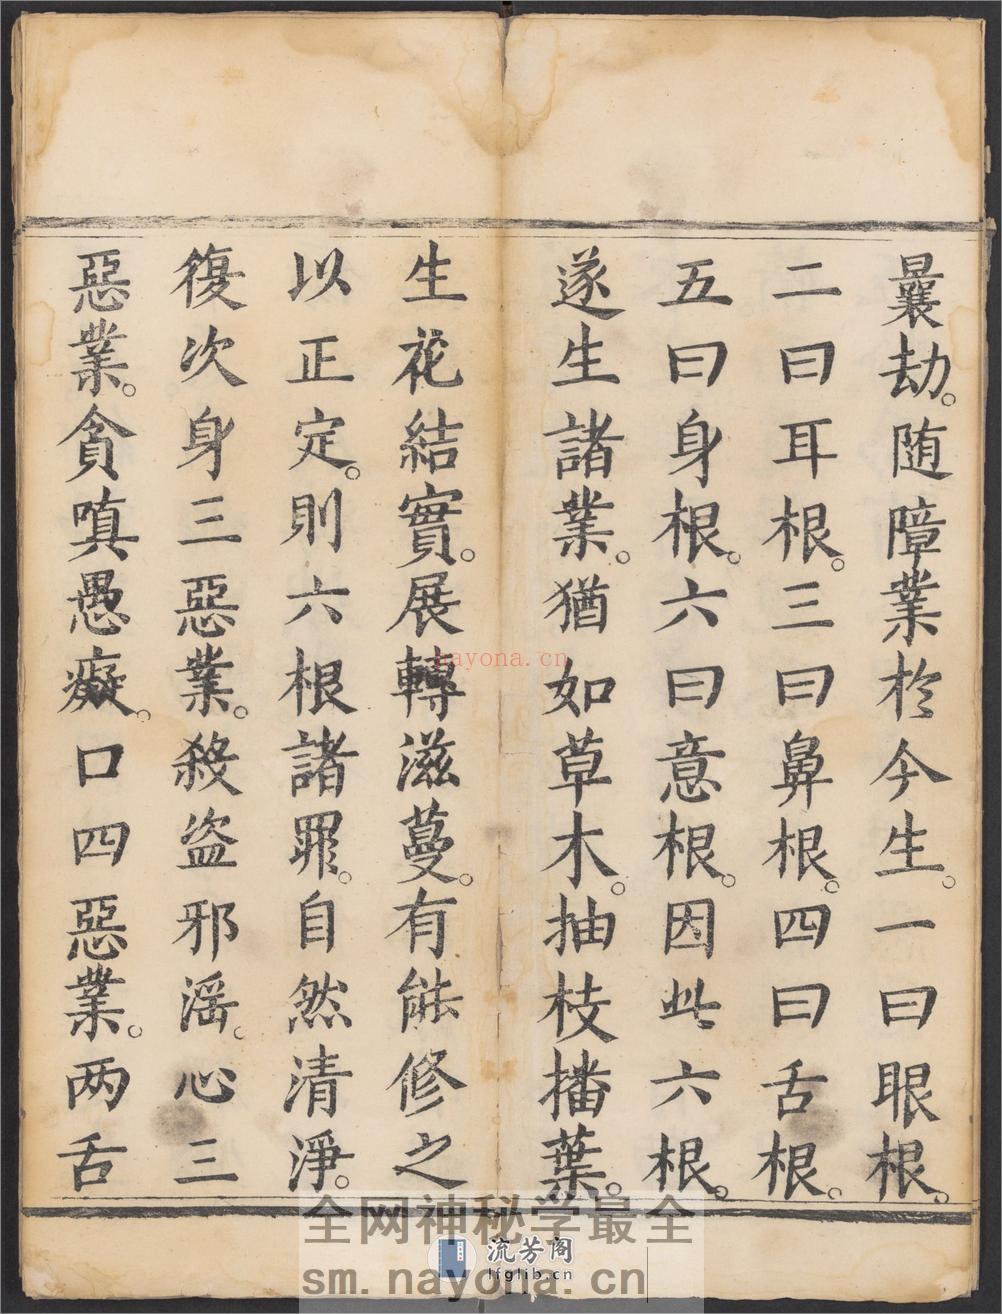 曩劫。随障業於今生。一曰眼根。
二曰耳根。三曰鼻根。四曰舌根。
五曰身根。六曰意根。因此六根。
遂生諸業。猶如草木。抽枝播葉。
生花結實。展轉滋蔓。有能修之
以正定。則六根諸罪。自然清淨。
復次身三惡業。殺盗邪滛。心三
惡業。貪嗔愚癡。口四惡業。两舌
nayona.cn
全网神秘学最全
流芳阁
lfglib.cn
sm.nayona.cn